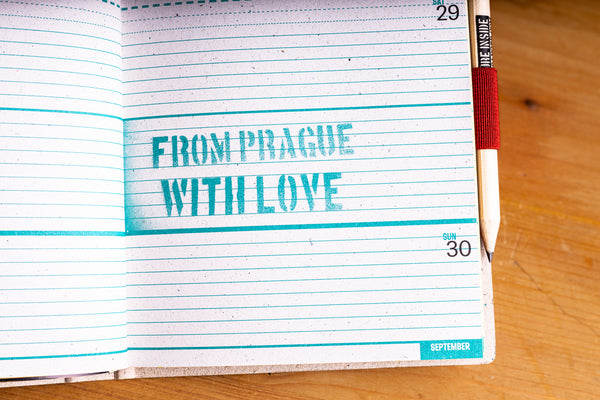 SAT
29
RE INSIDE
FROM PRAGUE
WITH LOVE
SUN
30
SEPTEMBER